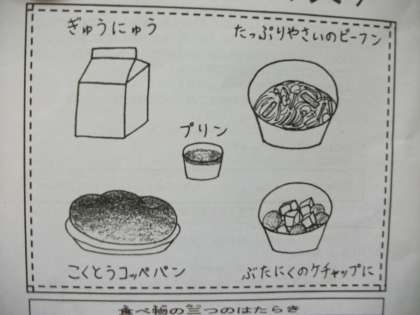 ぎゅうにゅう
たっぷりやさいのビーフン
プリン
こくとうコッペパン
ぶたにくのケチャップに
食べ物の三つのはたらき